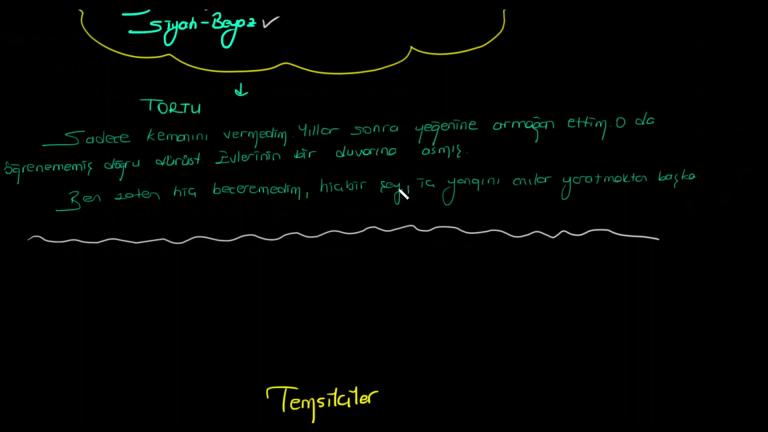 Siyah-Beyaz ✓
TORTU
Sadece kemanını vermedim Yıllar sonra yeğenine armağan ettim O da
öğrenememiş doğru dürüst Evlerinin bir duvarına asmış.
Ben zaten hiç beceremedim, hiçbir şey, iç yangını anılar yaratmaktan başka
Temsilciler